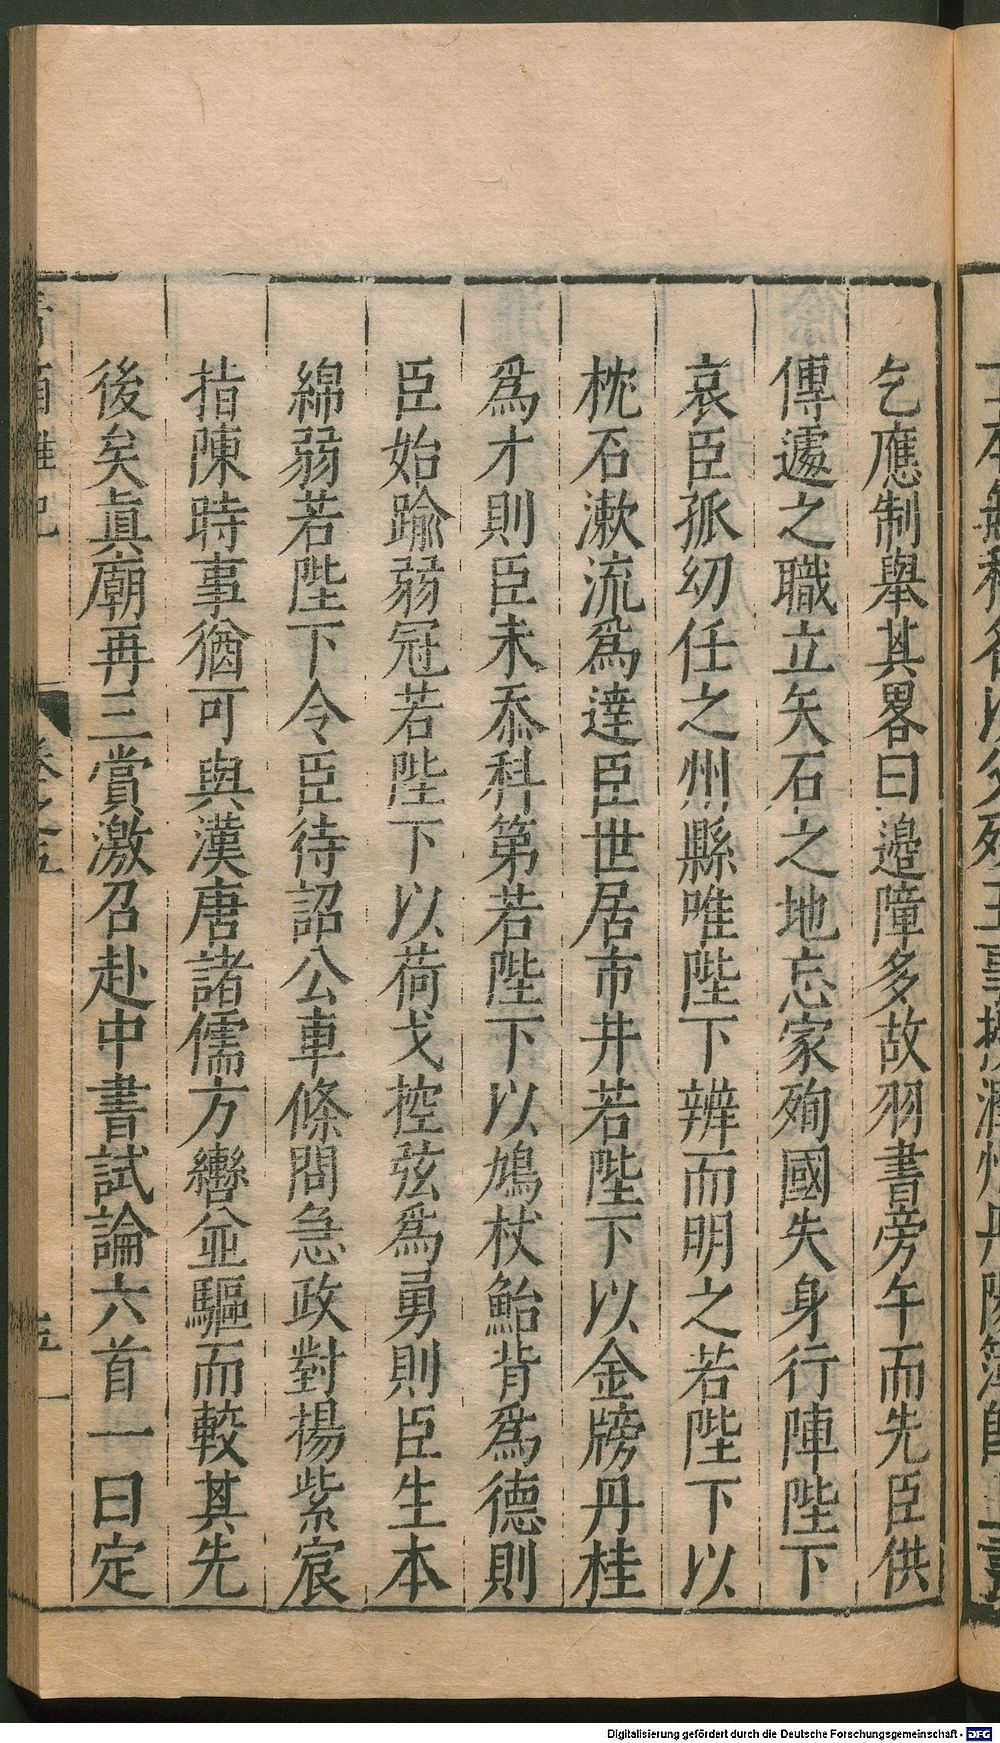 乞應制舉其畧曰邉障多故羽書旁午而先臣供
傳遽之職立矢石之地忘家殉國失身行陣陛下
哀臣孤幼任之州縣唯陛下辨而明之若陛下以
枕石漱流爲達臣世居市井若陛下以金牓丹桂
爲才則臣未忝科第若陛下以鳩杖鮐背爲德則
臣始踰弱冠若陛下以荷戈控弦爲勇則臣生本
綿弱若陛下令臣待詔公車條問急政對揚紫宸
指陳時事猶可與漢唐諸儒方轡並驅而較其先
後矣眞廟再三賞激召赴中書試論六首一曰定
卷之五
Digitalisierung gefördert durch die Deutsche Forschungsgemeinschaft - DFG